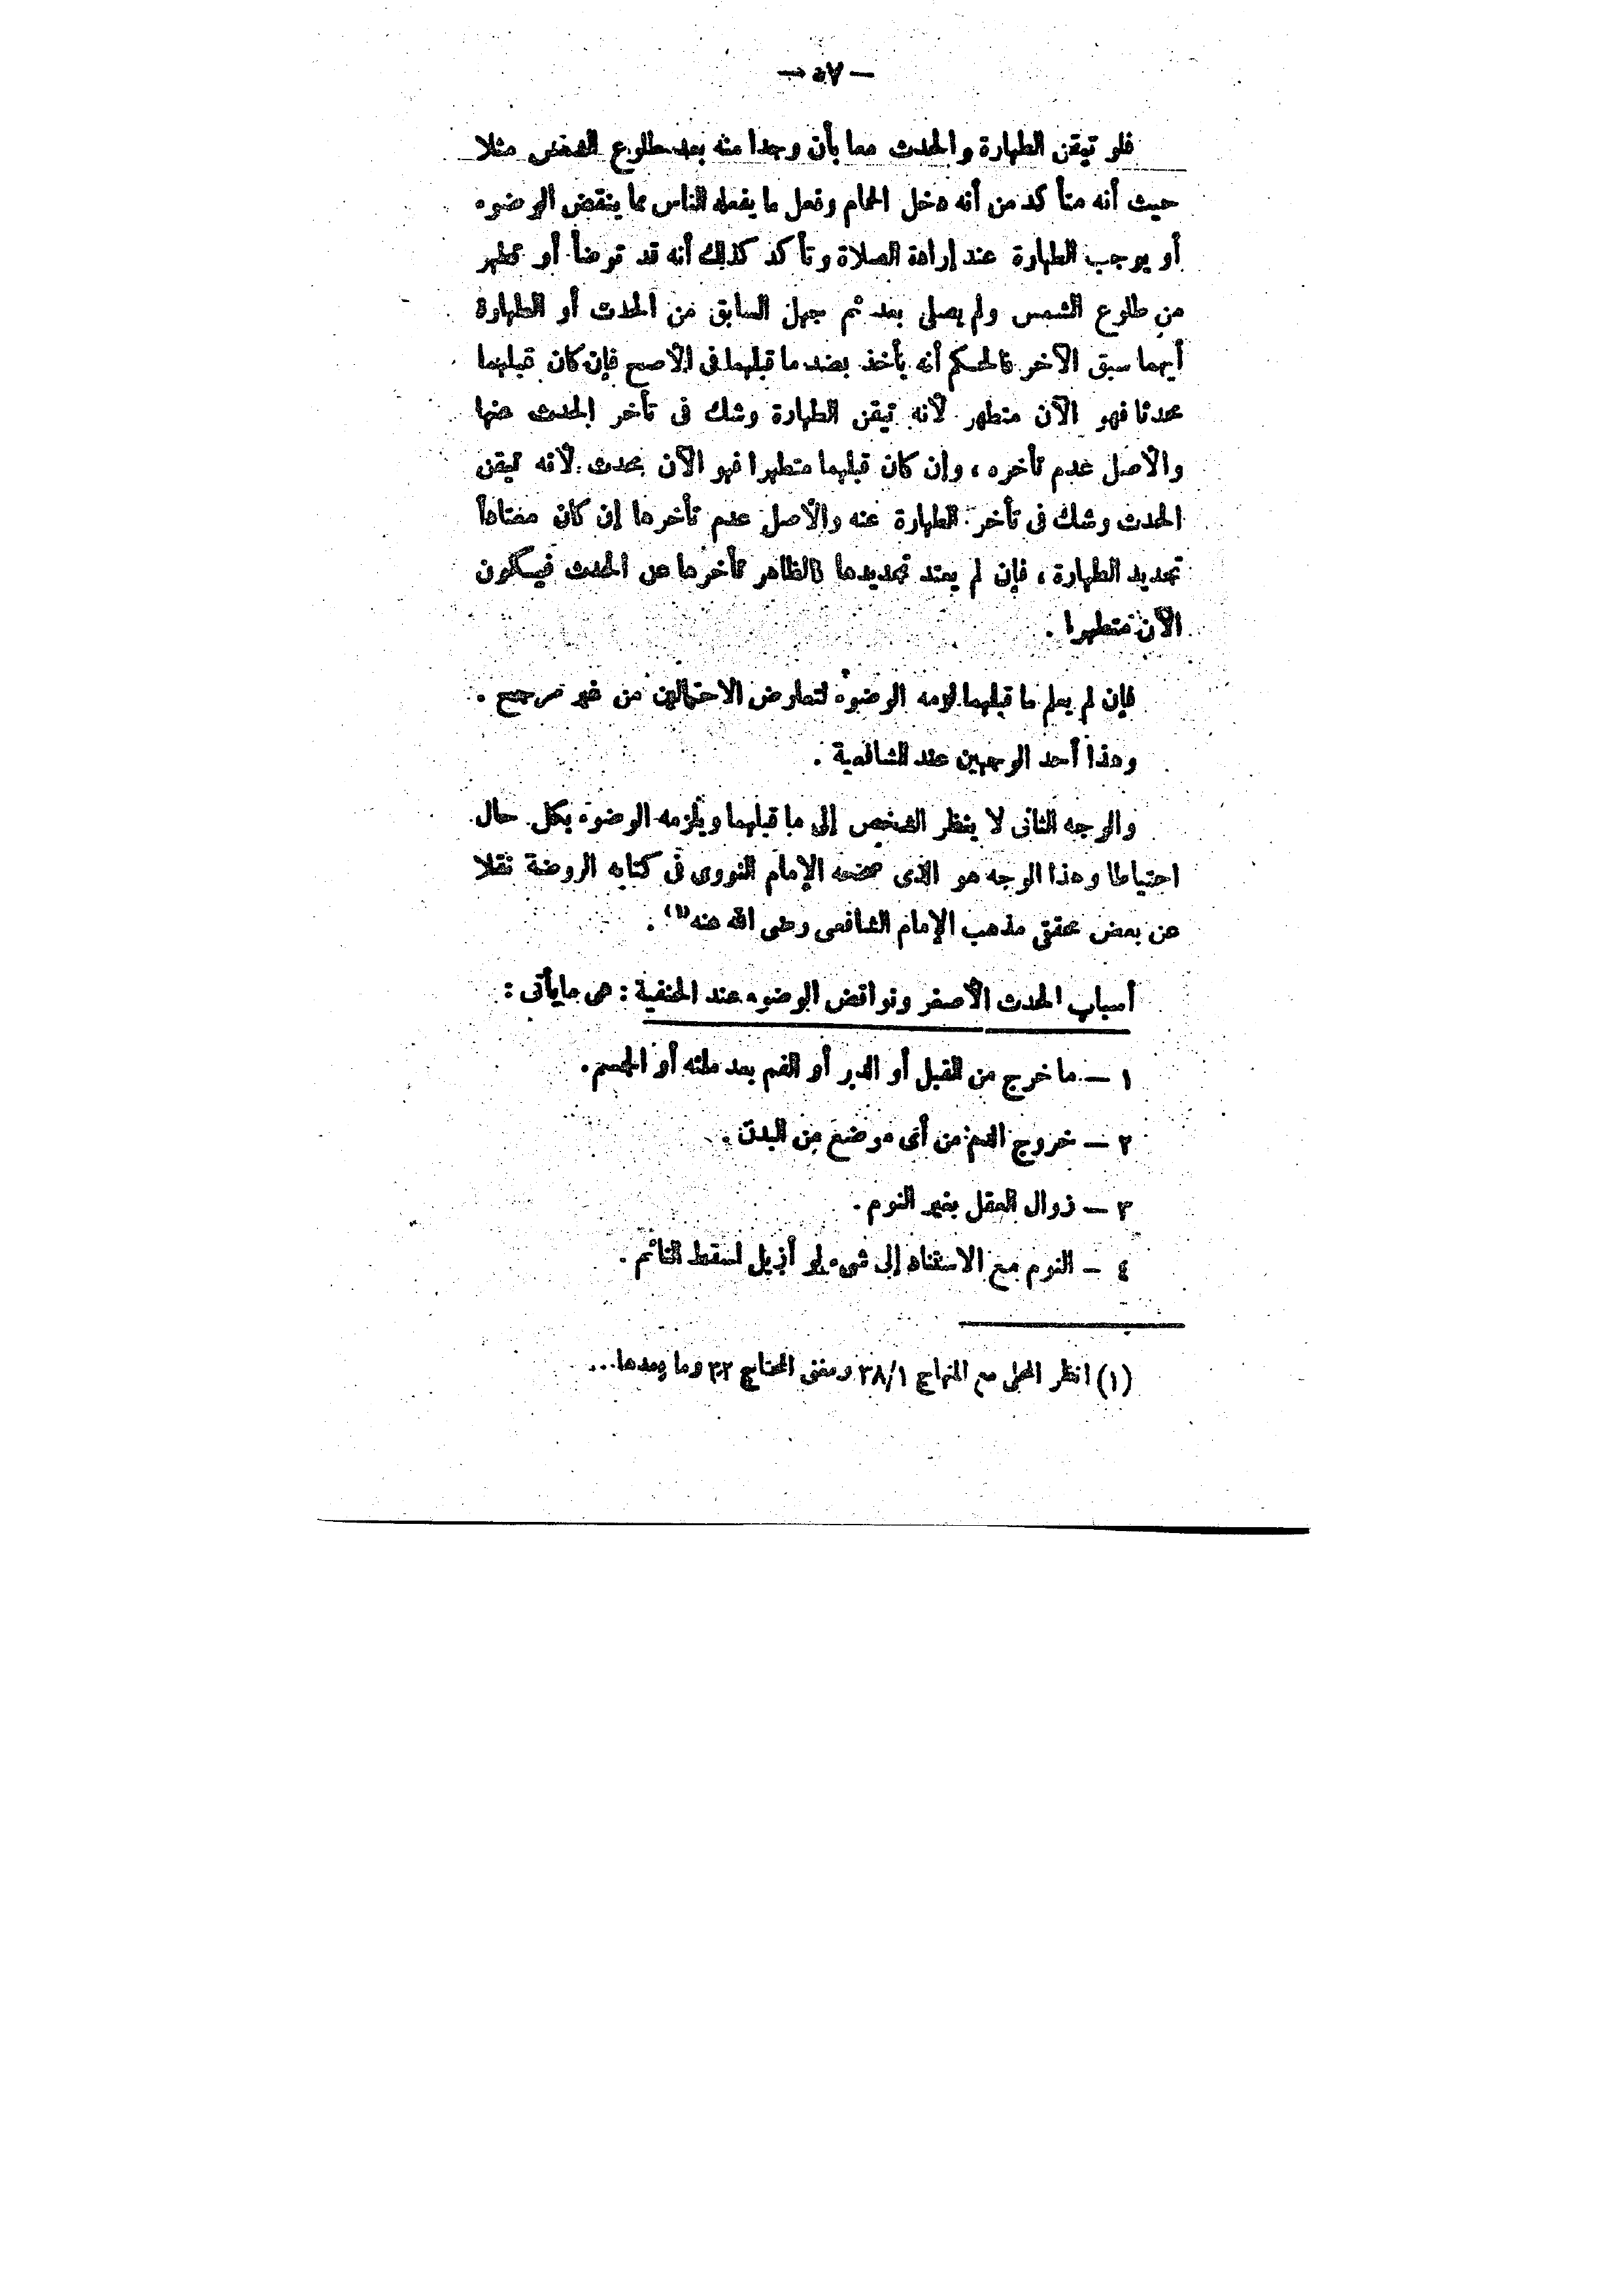 — ٥٧ —
فلو تيقن الطهارة والحدث معا بأن وجدا منه بعد طلوع الشمس مثلا
حيث أنه متأكد من أنه دخل الحمام وفعل ما يفعله الناس مما ينقض الوضوء
أو يوجب الطهارة عند إرادة الصلاة وتأكد كذلك أنه قد توضأ أو تطهر
من طلوع الشمس ولم يصلى بعد ثم جهل السابق من الحدث أو الطهارة
أيهما سبق الآخر فالحكم أنه يأخذ بضد ما قبلهما فى الأصح فإن كان قبلهما
محدثا فهو الآن متطهر لأنه تيقن الطهارة وشك فى تأخر الحدث عنها
والأصل عدم تأخره ، وإن كان قبلهما متطهرا فهو الآن محدث لأنه تيقن
الحدث وشك فى تأخر الطهارة عنه والأصل عدم تأخرها إن كان معتاداً
تجديد الطهارة ، فإن لم يعتد تجديدها فالظاهر تأخرها عن الحدث فيكون
الآن متطهرا .
فإن لم يعلم ما قبلهما لزمه الوضوء لتعارض الاحتمالين من غير مرجح .
وهذا أحد الوجهين عند الشافعية .
والوجه الثانى لا ينظر الشخص إلى ما قبلهما ويلزمه الوضوء بكل حال
احتياطا وهذا الوجه هو الذى صححه الإمام النووى فى كتابه الروضة نقلا
عن بعض محققى مذهب الإمام الشافعى رضى الله عنه(١) .
أسباب الحدث الأصغر ونواقض الوضوء عند الحنفية : هى ما يأتى :
١ — ما خرج من القبل أو الدبر أو الفم بعد ملئه أو الجسم .
٢ — خروج الدم من أى موضع من البدن .
٣ — زوال العقل بغير النوم .
٤ — النوم مع الاستناد إلى شىء لو أزيل لسقط النائم .
(١) انظر المحلى مع المنهاج ٣٨/١ ومغنى المحتاج ٣٢ وما بعدها ...